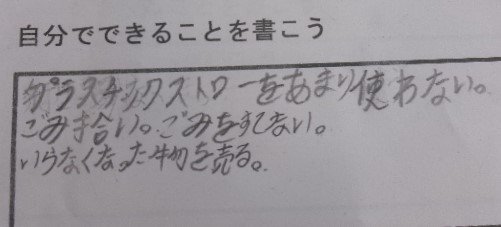 自分でできることを書こう
プラスチックストローをあまり使わない。
ごみ拾い。ごみをすてない。
いらなくなった物を売る。